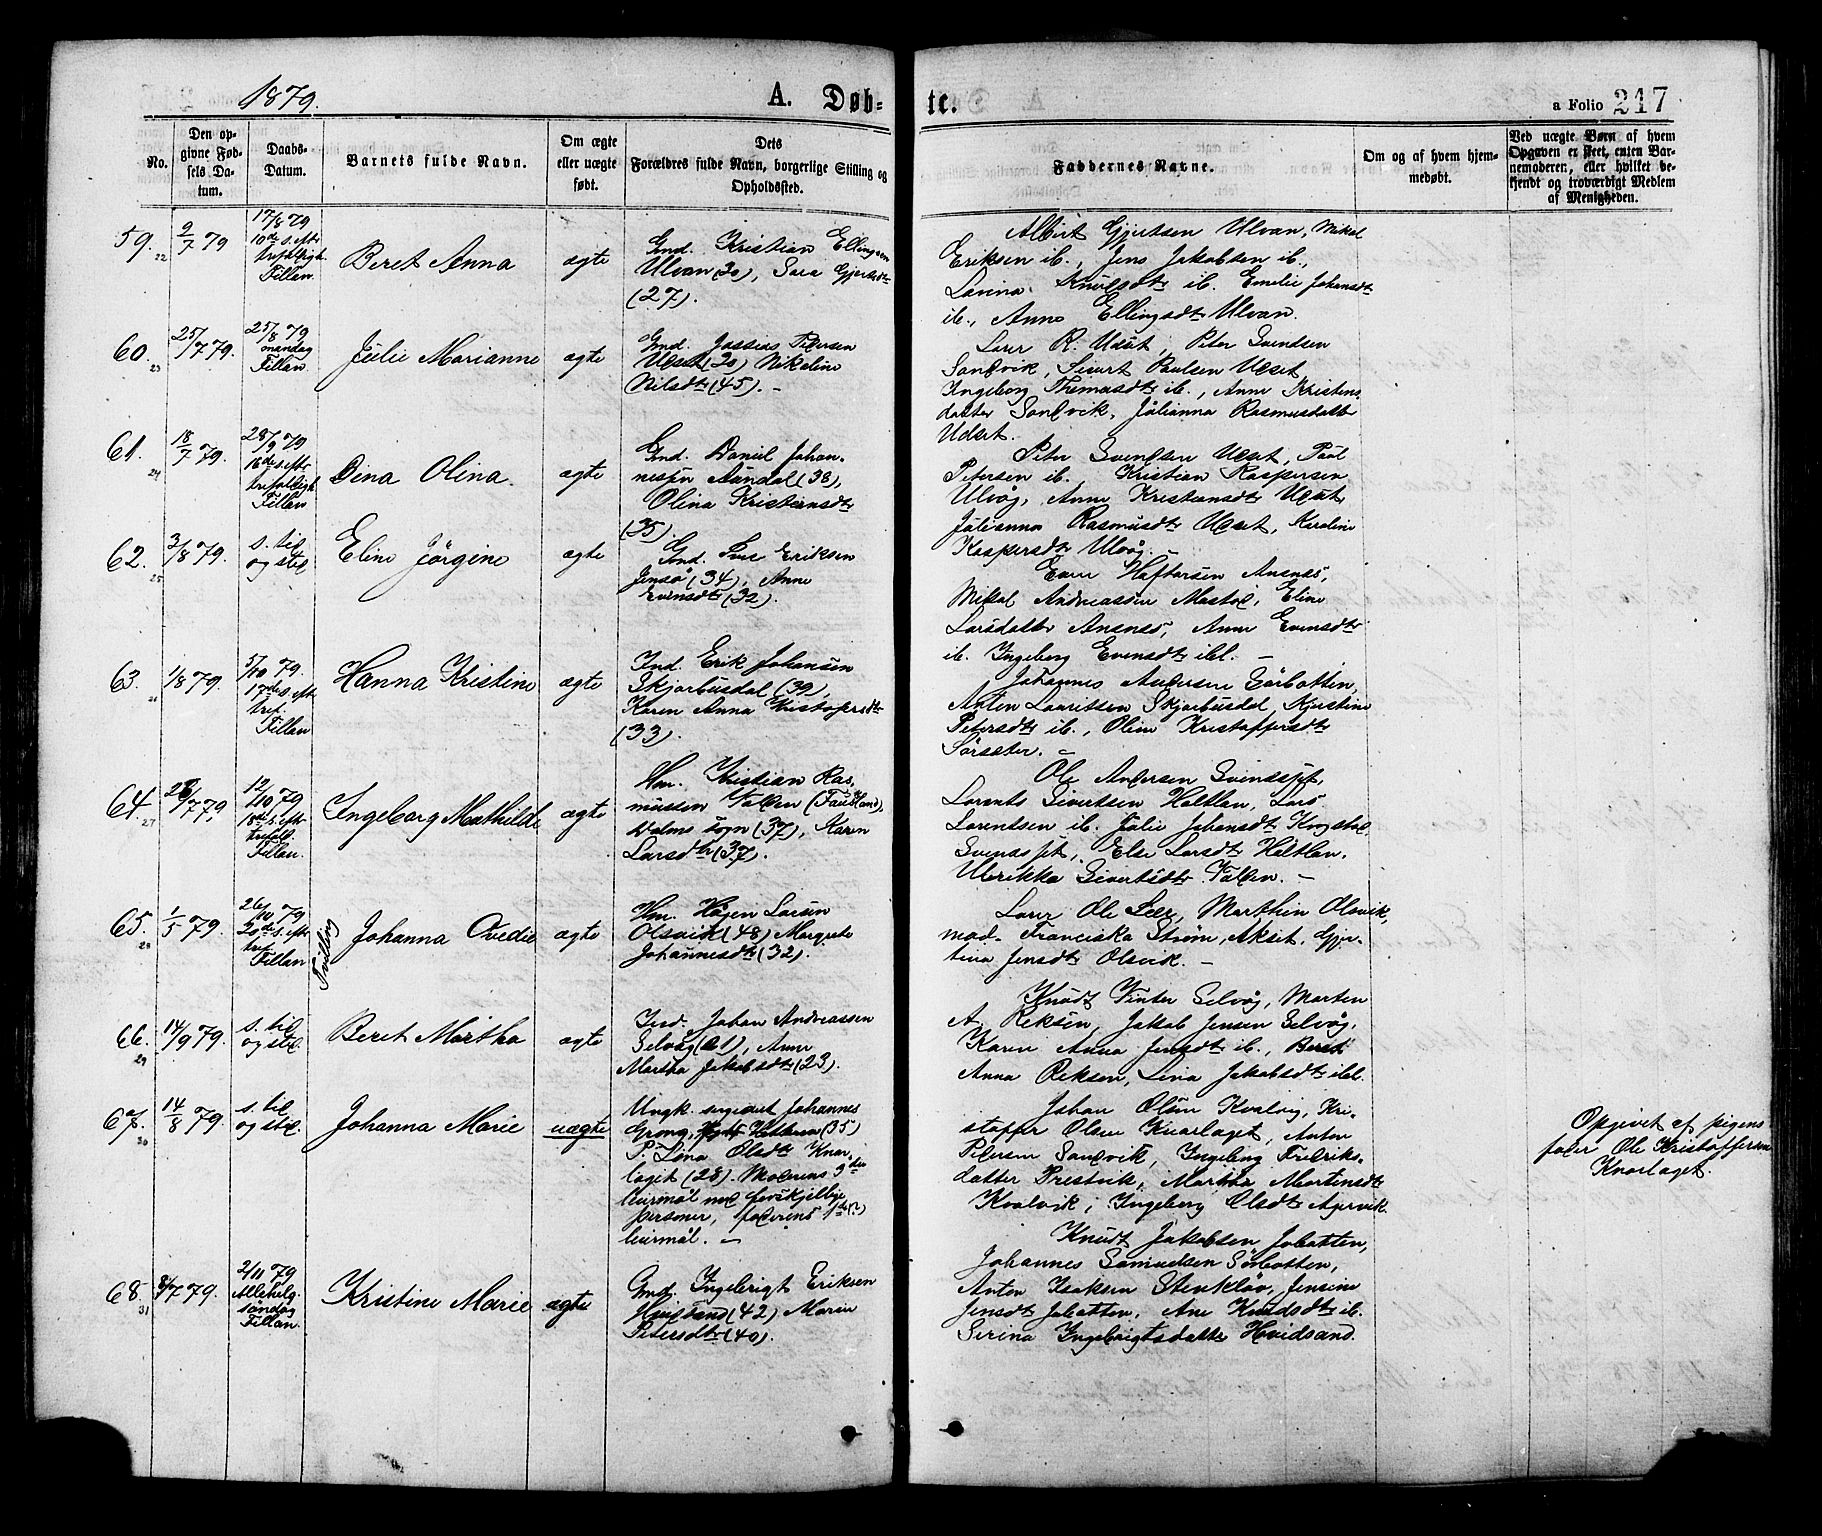 1879.
A. Døb-
te.
a Folio 217
No.
Den op-
givne Fød-
sels Da-
tum.
Daabs-
Datum.
Barnets fulde Navn.
Om ægte
eller uægte
født.
Dets
Forældres fulde Navn, borgerlige Stilling og
Opholdssted.
Faddernes Navne.
Om og af hvem hjem-
medøbt.
Ved uægte Børn af hvem
Opgaven er skeet, enten Bar-
nemoderen, eller hvilket be-
kjendt og troværdigt Medlem
af Menigheden.
59.
22
2/7 79
17/8 79
10de s. eft.
trefoldigh.
Fillan.
Beret Anna
ægte
Gmd. Kristian Ellingsen
Ulvan (30), Sara Gjertsdtr
(27).
Albert Gjertsen Ulvan, Mikal
Eriksen ib., Jens Jakobsen ib.,
Lovina Knudsdtr ib. Emelie Johansdt
ib., Anne Ellingsdtr Ulvan.
60.
23
25/7 79.
25/8 79
mandag
Fillan.
Julie Marianne
ægte
Gmd. Petersen
Udset (30) Nikoline
Nilsdtr (45). -
Lærer R. Udset, Peter Svendsen
Sandvik, Sivert Paulsen Udset
Ingeborg Thomasdtr ib., Anne Kristens
datter Sandvik, Julianna Rasmusdatter
Udset.
61.
24
18/7 79.
28/9 79
16de s. eft.
trefoldigh.
Fillan
Dina Olina.
ægte
Gmd. Daniel Johan-
nesen Aundal (38),
Olina Kristiansdtr
(35).
Peter Svendsen Udset, Paul
Petersen ib. Kristian Kaspersen
Ulvøg, Anne Kristensdtr Udset
Julianna Rasmusdtr Udset, Karoline
Kaspersdtr Ulvøg. -
62.
25
3/8 79.
s. til
og sted
Eline Jørgine
ægte
Gmd. Eriksen
Jensø (34), Anne
Evensdtr (32).
Even Haftorsen Ansnes,
Mikal Andreassen Mastad, Eline
Larsdatter Ansnes, Anne Evensdtr
ib. Ingeborg Evensdtr ibl. -
63.
26
1/8 79.
5/10 79.
17de s. eft.
tref.
Fillan
Hanna Kristine
ægte
Ind. Erik Johansen
Skjarbusdal (39),
Karen Anna Kristofersdtr
(33).
Johannes Andersen Sørbotten,
Anton Lauritssen Skjarbusdal, Kjerstine
Petersdtr ib., Oline Kristoffersdt
Sørsæter. -
64.
27
26/7 79
12/10 79
18de s. eft.
trefold.
Fillan.
Ingeborg Mathilde
ægte
Hm. Kristian Ras-
mussen Valen (Fauskland),
Dolms sogn (37), Karen
Larsdtr (37).
Ole Andersen
Lorents Sivertsen Haltlan, Lars
Lorentsen ib. Julie Johansdt
Else Larsdt Haltlan,
Ulrikka Sivertsdtr. Valen. -
65.
28
1/5 79.
26/10 79
20de s. eft.
tref.
Fillan
Tvilling
Johanna Ovedie
ægte
Hm. Hågen Larsen
Olsvik (48) Margrete
Johannesdt (32).
Lærer Ole Leer, Marthin Olsvik,
mad. Franciska Strøm, Akset, Gjer-
tina Jensdtr Olsvik. -
66.
29
14/9 79.
s. til
og sted.
Beret Martha
ægte
Ind. Johan Andreassen
Selvåg (21), Anne
Martha Jakobsdtr (23).
Knudt Vinter Selvåg, Morten
A. Reksen, Jakob Jensen Selvåg,
Karen Anna Jensdt ib., Beret
Anna Reksen, Lina Jakobsdt ibl.
67.
30
14/8 79.
s. til
og sted.
Johanna Marie
uægte
Ungk. sergeant Johannes
Grong, (35)
P. Lina Olsdtr Knar-
laget (28). Moderens 3die
leiermål med forskjellige
personer, faderens 1ste (?)
leiermål. -
Johan Olsen Kvalvig, Kri-
stoffer Olsen Knarlaget, Anton
Petersen Sandvik, Ingeborg Fredriks-
datter Prestvik, Martha Mortensdt
Kvalvik, Ingeborg Olsdtr Agervik
Opgivet af pigens
fader Ole Kristoffersen
Knarlaget.
68.
31
8/7 79.
2/11 79
Allehelg.
søndag
Fillan.
Kristine Marie
ægte
Gmd. Ingebrigt Eriksen
(42) Maren
Petersdtr (40).
Knudt Jakobsen Jobotten,
Johannes Samuelsen Sørbotten,
Anton Isaksen Stenkløv, Jensine
Jensdt Jobotten, Ane Knudsdtr ib.
Serina Ingebrigtsdatter Hvidsand.